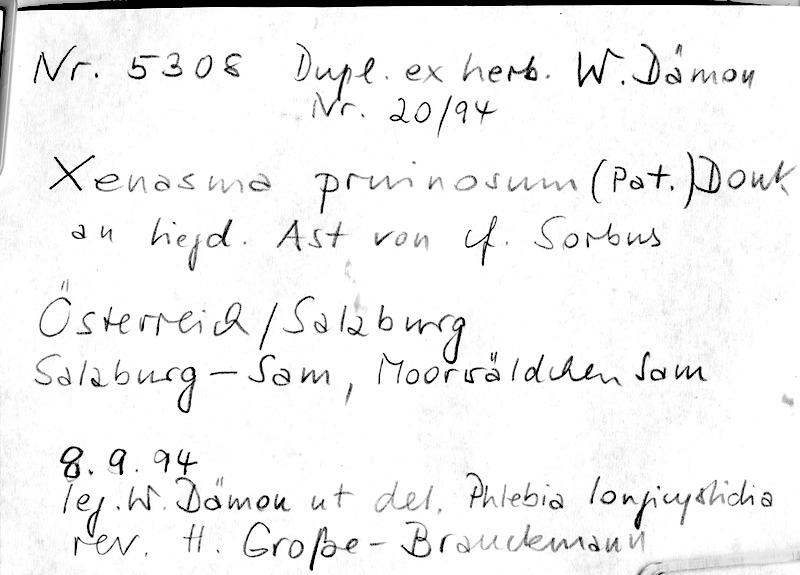 Nr. 5308 Dupl. ex herb. W. Dämon
Nr. 20/94
Xenasma pruinosum (Pat.) Donk
an liegd. Ast von cf. Sorbus
Österreich/Salzburg
Salzburg-Sam, Moorwäldchen Sam
8.9.94
leg. W. Dämon ut det. Phlebia longicystidia
rev. H. Große-Brauckmann